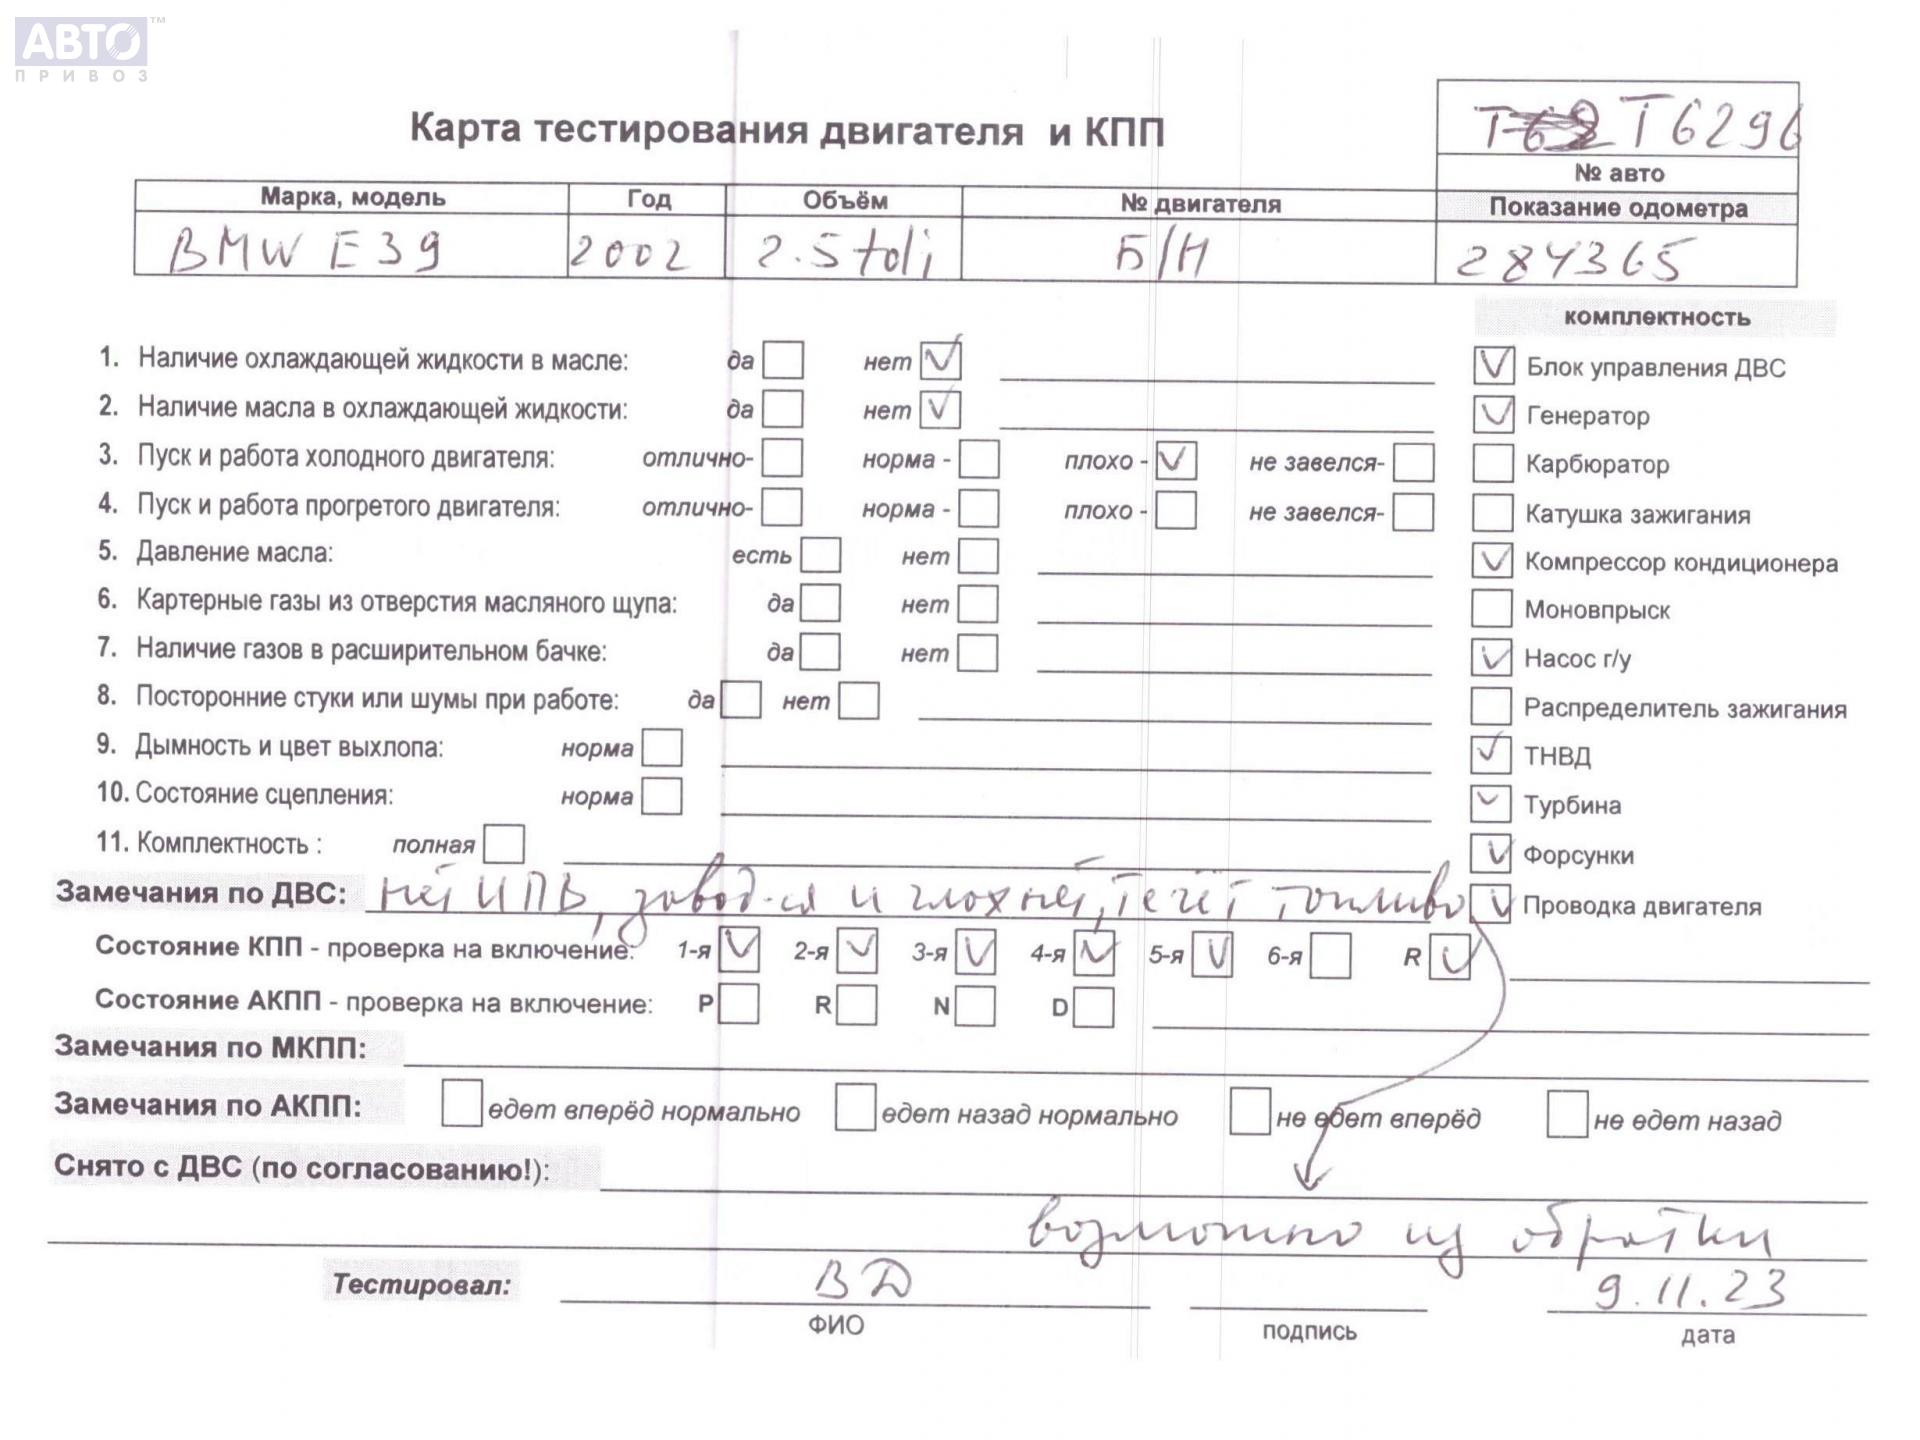 АВТО ™
ПРИВОЗ
Карта тестирования двигателя и КПП
Т6296
№ авто
Марка, модель Год Объём № двигателя Показание одометра
BMW E39 2002 2.5 tdi Б/Н 284365
комплектность
1. Наличие охлаждающей жидкости в масле: да нет ✓ ✓ Блок управления ДВС
2. Наличие масла в охлаждающей жидкости: да нет ✓ ✓ Генератор
3. Пуск и работа холодного двигателя: отлично- норма - плохо - ✓ не завелся- Карбюратор
4. Пуск и работа прогретого двигателя: отлично- норма - плохо - не завелся- Катушка зажигания
5. Давление масла: есть нет ✓ Компрессор кондиционера
6. Картерные газы из отверстия масляного щупа: да нет Моновпрыск
7. Наличие газов в расширительном бачке: да нет ✓ Насос г/у
8. Посторонние стуки или шумы при работе: да нет Распределитель зажигания
9. Дымность и цвет выхлопа: норма ✓ ТНВД
10. Состояние сцепления: норма ✓ Турбина
11. Комплектность : полная ✓ Форсунки
Замечания по ДВС: нет ИПВ, завод-ся и глохнет, течёт топливо ✓ Проводка двигателя
Состояние КПП - проверка на включение: 1-я ✓ 2-я ✓ 3-я ✓ 4-я ✓ 5-я ✓ 6-я R ✓
Состояние АКПП - проверка на включение: P R N D
Замечания по МКПП:
Замечания по АКПП: едет вперёд нормально едет назад нормально не едет вперёд не едет назад
Снято с ДВС (по согласованию!):
возможно из обратки
Тестировал: ВД 9.11.23
ФИО подпись дата